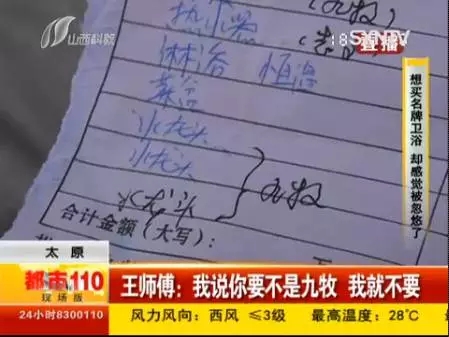 山西科教
直播
(九牧)
热水器
淋浴 恒温
菜盆
水龙头
水龙头
水龙头
九牧
合计金额(大写):
想买名牌卫浴 却感觉被忽悠了
太原
都市110
现场版
24小时8300110
王师傅:我说你要不是九牧 我就不要
风力风向:西风 ≤3级 最高温度:28℃